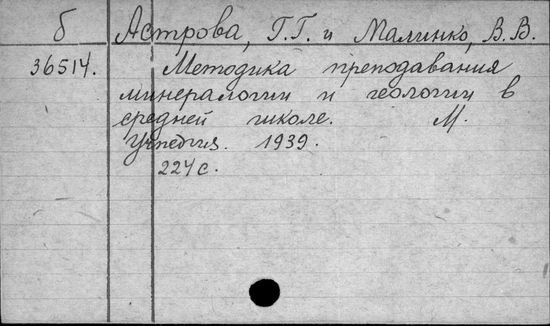 б Астрова, Г.Г. и Малинко, В.В.
36514. Методика преподавания
минералогии и геологии в
средней школе. М.
Учпедгиз. 1939.
224 с.